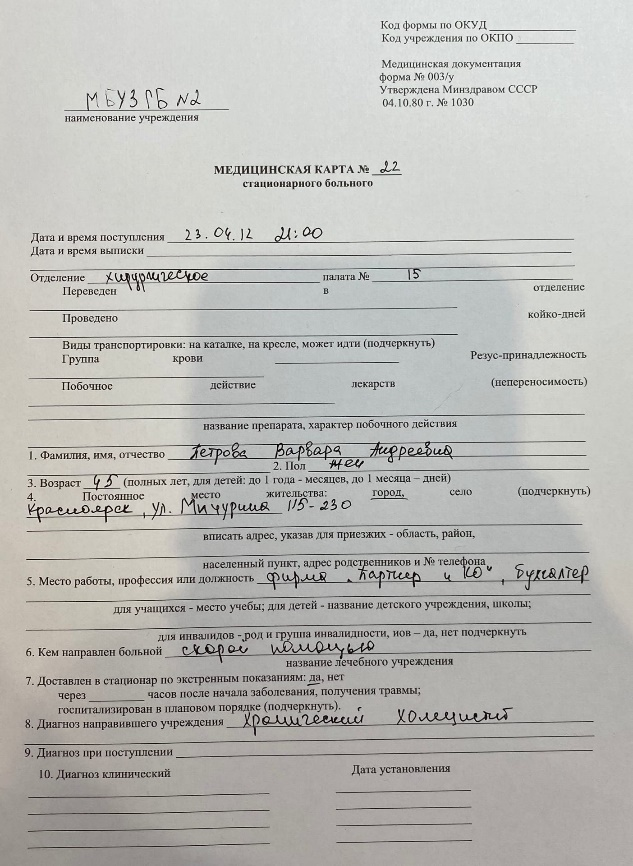 Код формы по ОКУД
Код учреждения по ОКПО
Медицинская документация
форма № 003/у
Утверждена Минздравом СССР
04.10.80 г. № 1030
МБУЗ ГБ №2
наименование учреждения
МЕДИЦИНСКАЯ КАРТА № 22
стационарного больного
Дата и время поступления 23.04.12 21:00
Дата и время выписки
Отделение хирургическое палата № 15
Переведен в отделение
Проведено койко-дней
Виды транспортировки: на каталке, на кресле, может идти (подчеркнуть)
Группа крови Резус-принадлежность
Побочное действие лекарств (непереносимость)
название препарата, характер побочного действия
1. Фамилия, имя, отчество Петрова Варвара Андреевна
2. Пол жен
3. Возраст 45 (полных лет, для детей: до 1 года - месяцев, до 1 месяца – дней)
4. Постоянное место жительства: город, село (подчеркнуть)
Красноярск, ул. Мичурина 115-230
вписать адрес, указав для приезжих - область, район,
населенный пункт, адрес родственников и № телефона
5. Место работы, профессия или должность фирма "Партнер и КО", бухгалтер
для учащихся - место учебы; для детей - название детского учреждения, школы;
для инвалидов - род и группа инвалидности, иов – да, нет подчеркнуть
6. Кем направлен больной скорой помощью
название лечебного учреждения
7. Доставлен в стационар по экстренным показаниям: да, нет
через часов после начала заболевания, получения травмы;
госпитализирован в плановом порядке (подчеркнуть).
8. Диагноз направившего учреждения Хронический холецистит
9. Диагноз при поступлении
10. Диагноз клинический Дата установления